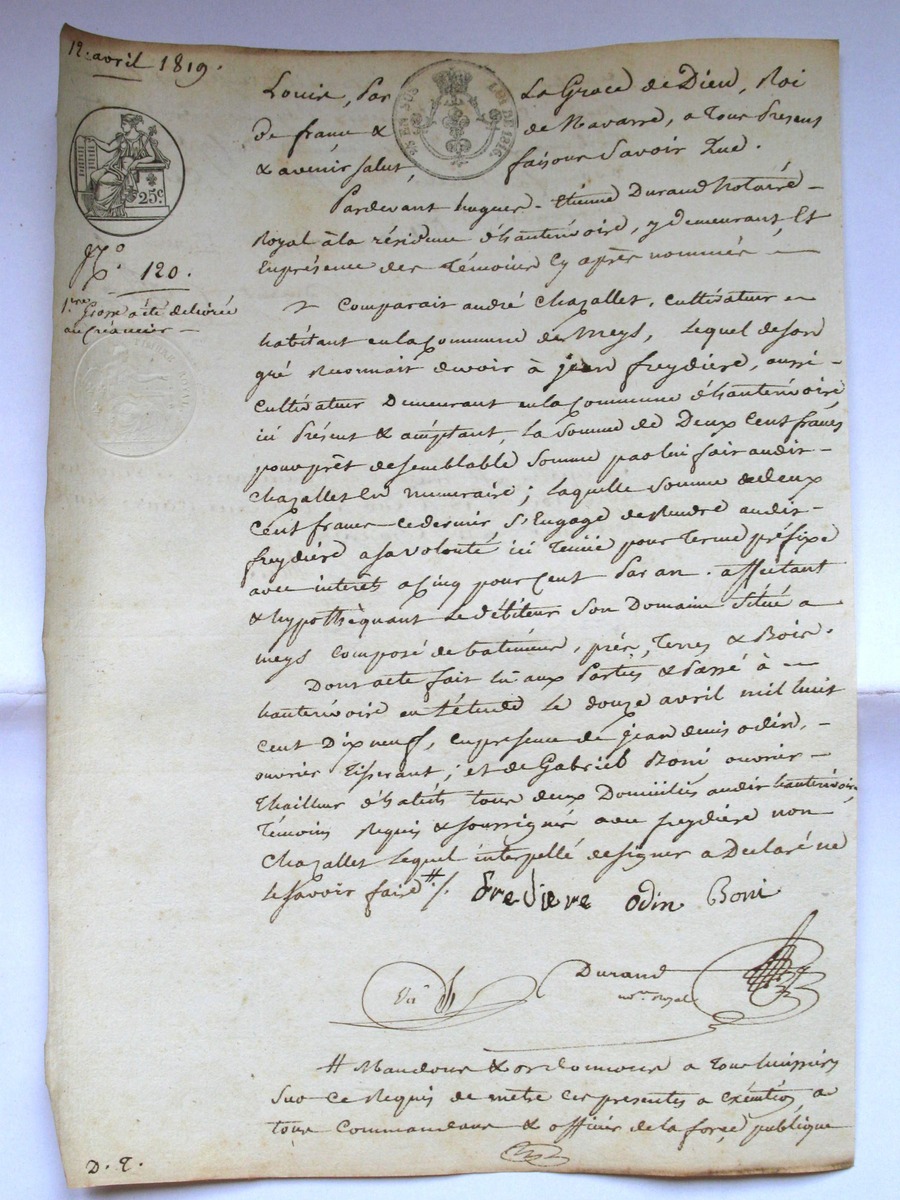 12. avril 1819.
Louis, Par La Grace de Dieu, Roi
EN SUS LOI DE 1816
de france & de Navarre, a Tous Presens
& avenir salut, faisons Savoir Que.
25c
Pardevant hugues-Etienne Durand Notaire
Royal à la résidence d'hauterivoire, y demeurant, Et
En présence des Témoins Cy après nommés
N.o 120.
1ere Grosse a été delivrée
au créancier
Comparait andré Chazallet, cultivateur
habitant en la Commune de Meys, lequel de son
gré Reconnait devoir à jean freydière, aussi
cultivateur Demeurant en la Commune d'hauterivoire
ici Présent & acceptant, la Somme de Deux Cent francs
pour prêt de semblable Somme par lui fait audit
Chazallet En numeraire; laquelle Somme de deux
Cent francs ce dernier S'Engage de Rendre audit
freydière a sa volonté ici Tenue pour Terme préfixe
avec interêt a Cinq pour Cent Par an. affectant
& hypothèquant Le débiteur Son Domaine Situé a
meys Composé de batimens, prés, Terres & Bois.
Dont acte fait lu aux Parties & Passé à
hauterivoire en L'étude Le douze avril mil huit
cent Dix neuf, en presence de jean denis odin,
ouvrier Tisserant; et de Gabriel Boni ouvrier
thailleur d'habits tous deux Domiciliés audit hauterivoire
Témoins Requis & soussignés avec freydière non
Chazallet Lequel interpellé de signer a Declaré ne
le savoir faire #/.
frediere odin Boni
Durand
nre. Royal
# Mandons & ordonnons a Tous huissiers
Sur ce Requis de metre ces presentes a Exécution, a
tous Commandans & officiers de la force publique
D. T.